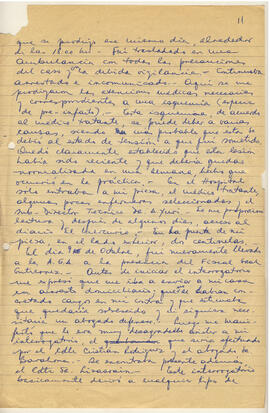 11
que se produjo ese mismo día, alrededor
de las 18.00 hrs. - Fui trasladado en una
Ambulancia con todas las precauciones
del caso y la debida vigilancia. - Continuaba
arrestado e incomunicado. - Aquí se me
prodigaron las atenciones médicas necesarias
y correspondiente a una isquemia (especie
de pre-infarto). - Esta isquemia, de acuerdo
al médico tratante, se puede deber a varias
causas, siendo muy probable que ésta se
debió al estado de tensión a que fui sometido.
Quedó claramente establecido que esta lesión
había sido reciente y que debería quedar
normalizada en una semana, hecho que
ocurrió en la práctica. - En el Hospital
solo entraba a mi pieza, el médico tratante,
algunas pocas enfermeras seleccionadas, y el
Sub-Director Técnico de
lectura y después de algunos días, acceso al
diario "El Mercurio". - En la puerta de mi
pieza, en el lado exterior, dos centinelas.
El día de Octubre, fui nuevamente llevado
a la AGA a la presencia del Fiscal Gral
Gutiérrez. - Antes de iniciar el interrogatorio
me expresó que me iba a enviar a mi casa
en arresto domiciliario, que no habían
cargos en mi contra y que estimaba
que quedaría sobreseído y ni siquiera nece-
sitaría un abogado defensor. - Luego me mani-
festó que le era muy desagradable asistir a mi
interrogatorio, el que sería efectuado
por el Cdte Cristian Rodríguez y el abogado Sr
Barahona. - Se encontraba presente además
el Cdte Sr. Lavanderos. - Este interrogatorio
básicamente derivó a cualquier tipo de